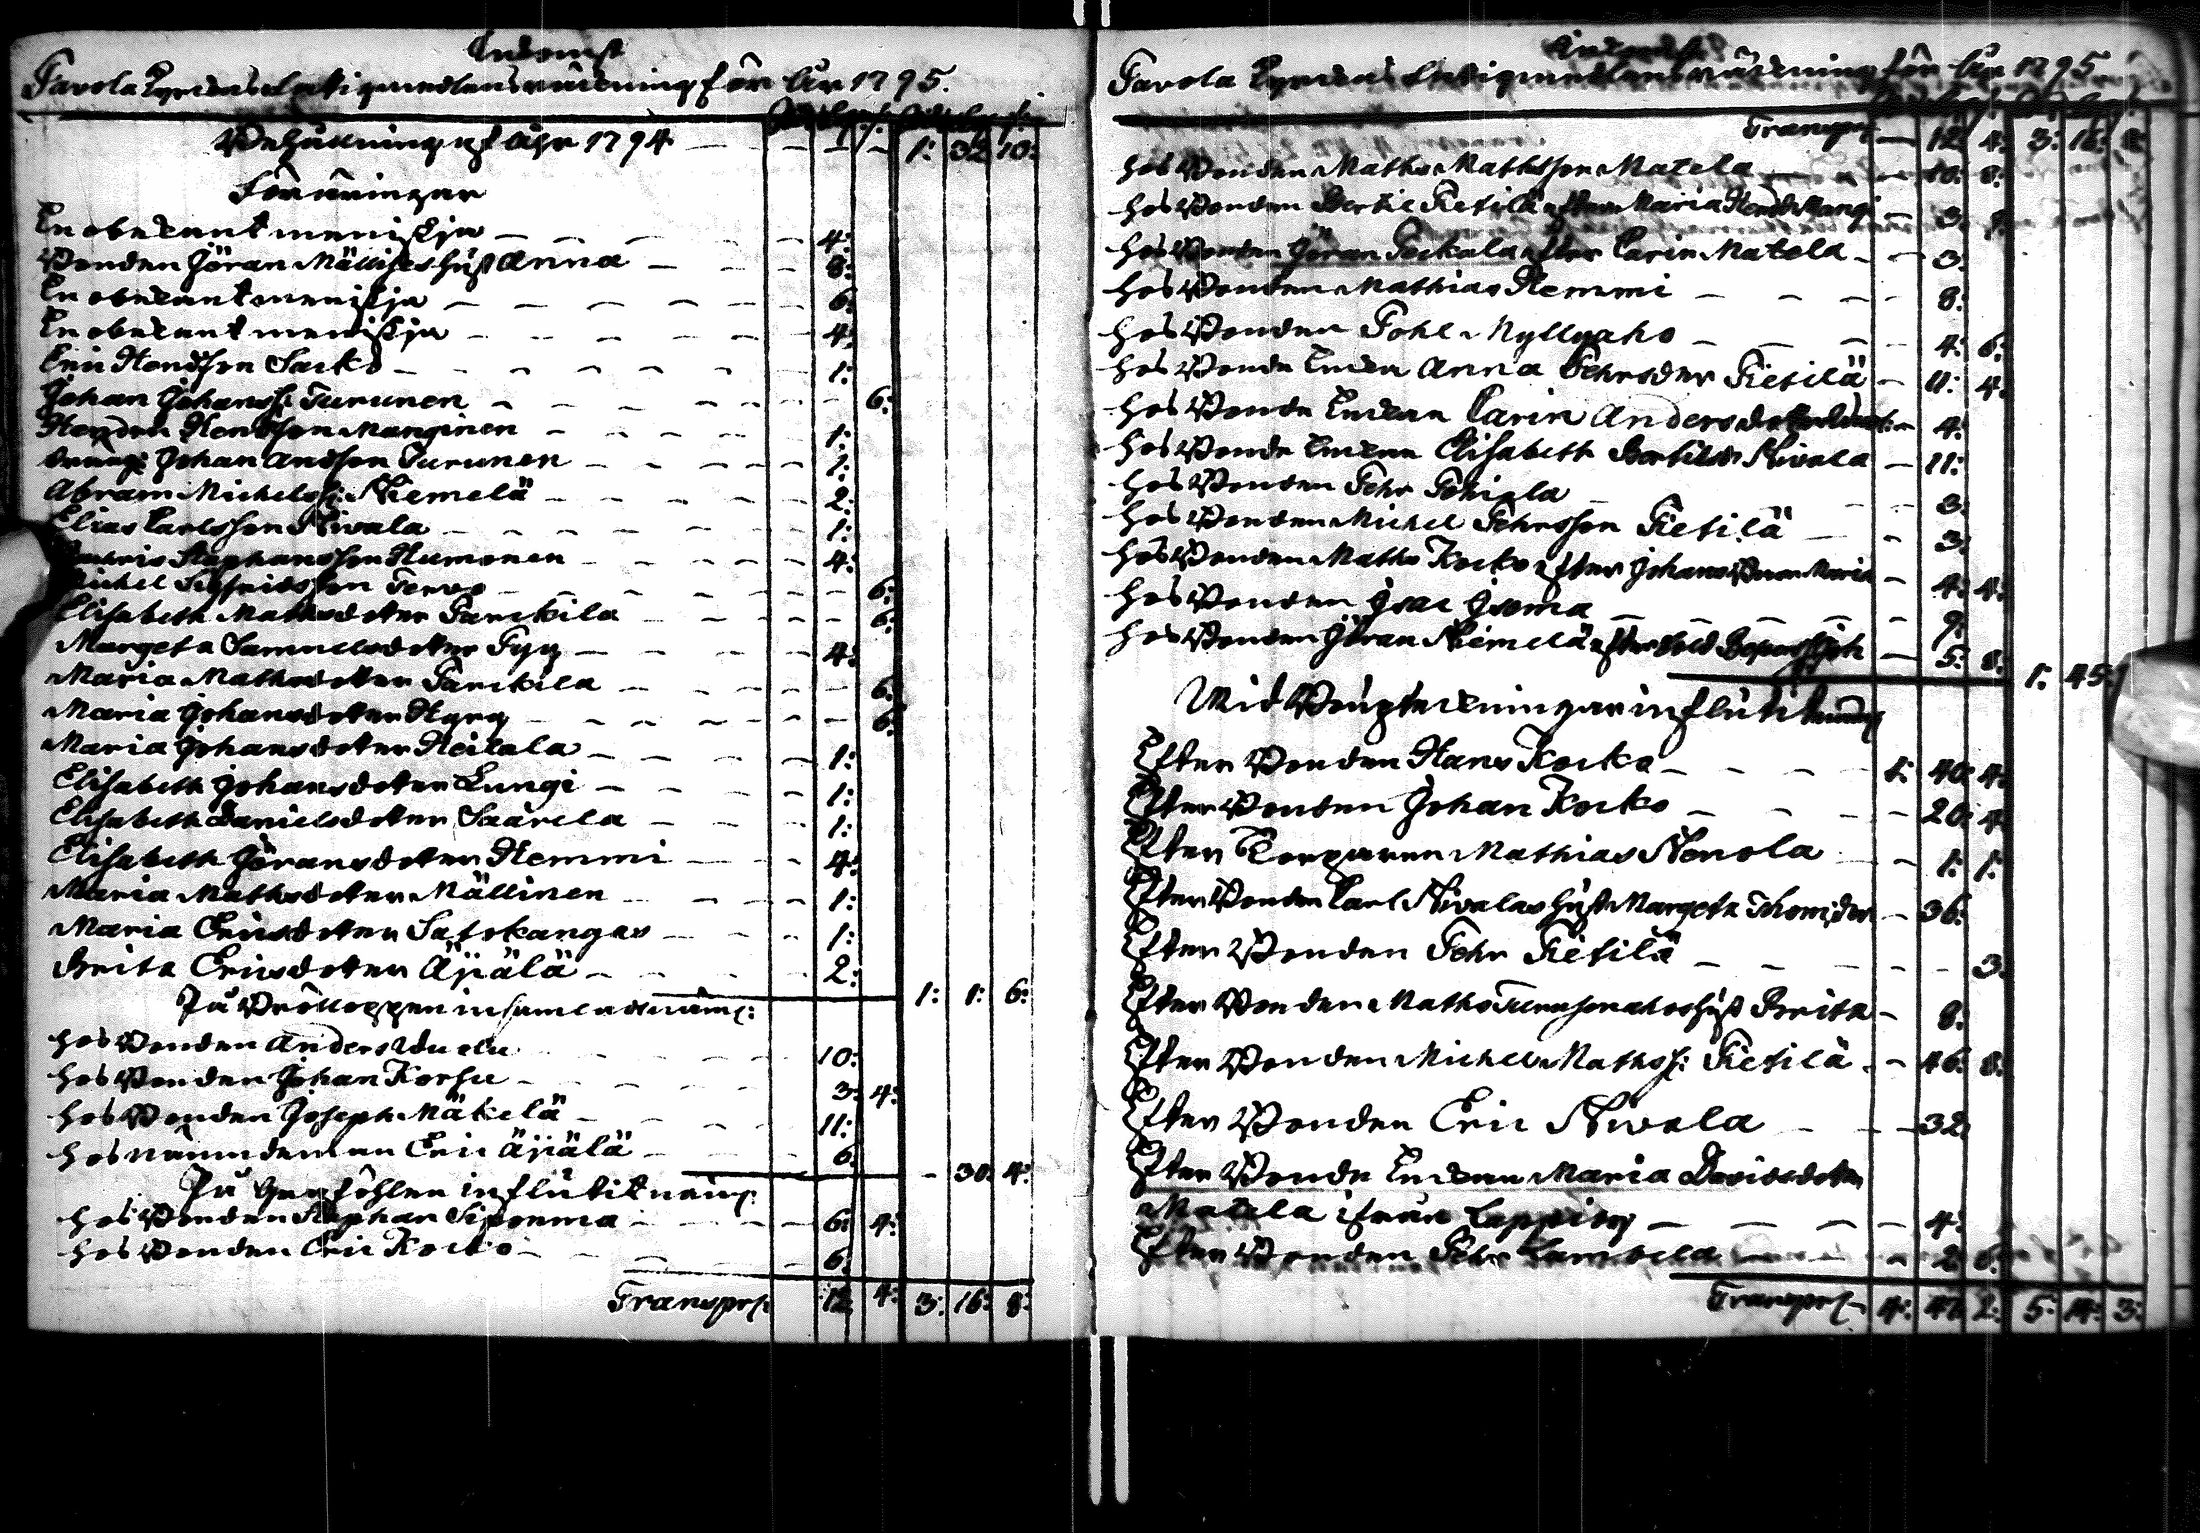 Inkomst
Pavola Kyrckas Fattigmedlens räckning för år 1795.
Behållning af åhr 1794 1: 32 10:
Föräringar
En obekant menniskja 4:
Bonden Jöran Mällises hust: Anna 8:
En obekant menniskja 6:
En obekant menniskja 4:
Eric Hendsson Karko 1:
Johan Johanss: Turunen 6:
Henden Hendsson Manginen 1:
dräng: Johan Andsson Turunen 1:
Abram Michelss: Niemelä 2:
Elias Carlsson Nivala 1:
Staphansson Humonen 4:
Michel Sigfridsson Tervo 6:
Elisabeth Mathsdotter Parckila 6:
Margeta Samuelsdotter Pyy 4:
Maria Mathsdotter Parckila 6:
Maria Johansdotter Hyry 6:
Maria Johansdotter Heilala 1:
Elisabeth Johansdotter Lungi 1:
Elisabeth Danielsdotter Saarela 1:
Elisabeth Jöransdotter Hemmi 4:
Maria Mathsdotter Mällinen 1:
Maria Ericsdotter Satokangas 1:
Brita Ericsdotter Äijälä 2:
1: 1: 6:
På Brölloppen insamladt näml:
hos Bonden Anders 10:
hos Bonden Johan Korhu 3: 4:
hos Bonden Joseph Mäkelä 11:
hos nämndeman Eric Äijälä 6:
- 30: 4:
På Graföhlen influtit näml:
hos Bonden Staphan Siponma 6: 4:
hos Bonden Eric Kocko 6:
Transport 12 4: 3: 16: 8:
Inkomst
Pavola Kyrckas Fattigmedlens räckning för år 1795
Transport 12 4: 3: 16: 8:
hos Bonden Maths Mathsson Matela 10: 8:
hos Bonden Bertil Pietilä efter Maria Hendr: Mangi 3:
hos Bonden Jöran Pockala efter Carin Matela 3:
hos Bonden Mathias Hemmi 8:
hos Bonden Pohl Myllyaho 4: 6:
hos Bonde Enkan Anna Pehrsdr Pietilä 11: 4:
hos Bonde Enkan Carin Andersdotter 4:
hos Bonde Enkan Elisabeth Bertilsdr Nivala 11:
hos Bonden Pehr 3:
hos Bonden Michel Pehrsson Pietilä 3:
hos Bonden Maths Kocko efter Johans Maria 4: 4:
hos Bonden Isac Isoma 9:
hos Bonden Jöran Niemelä efter 5: 8:
1: 45:
Wid Boupteckningar influtit näml
Efter Bonden Hans Kocko 1: 40: 4:
Efter Bonden Johan Kocko 20: 4
Efter Torparen Mathias Nenola 1: 1:
Efter Bonden Carl Nivalas hust: Margeta Thom:dr 36:
Efter Bonden Pehr Pietilä 3:
Efter Bonden Maths hust Brita 8:
Efter Bonden Michel Mathss: Pietilä 46: 8:
Efter Bonden Eric Nivala 32:
Efter Bonde Enkan Maria Davidsdotter
Matela ifrån 4:
Efter Bonden Pehr Lambela 2: 6:
Transport 4: 47 2: 5: 14: 3: